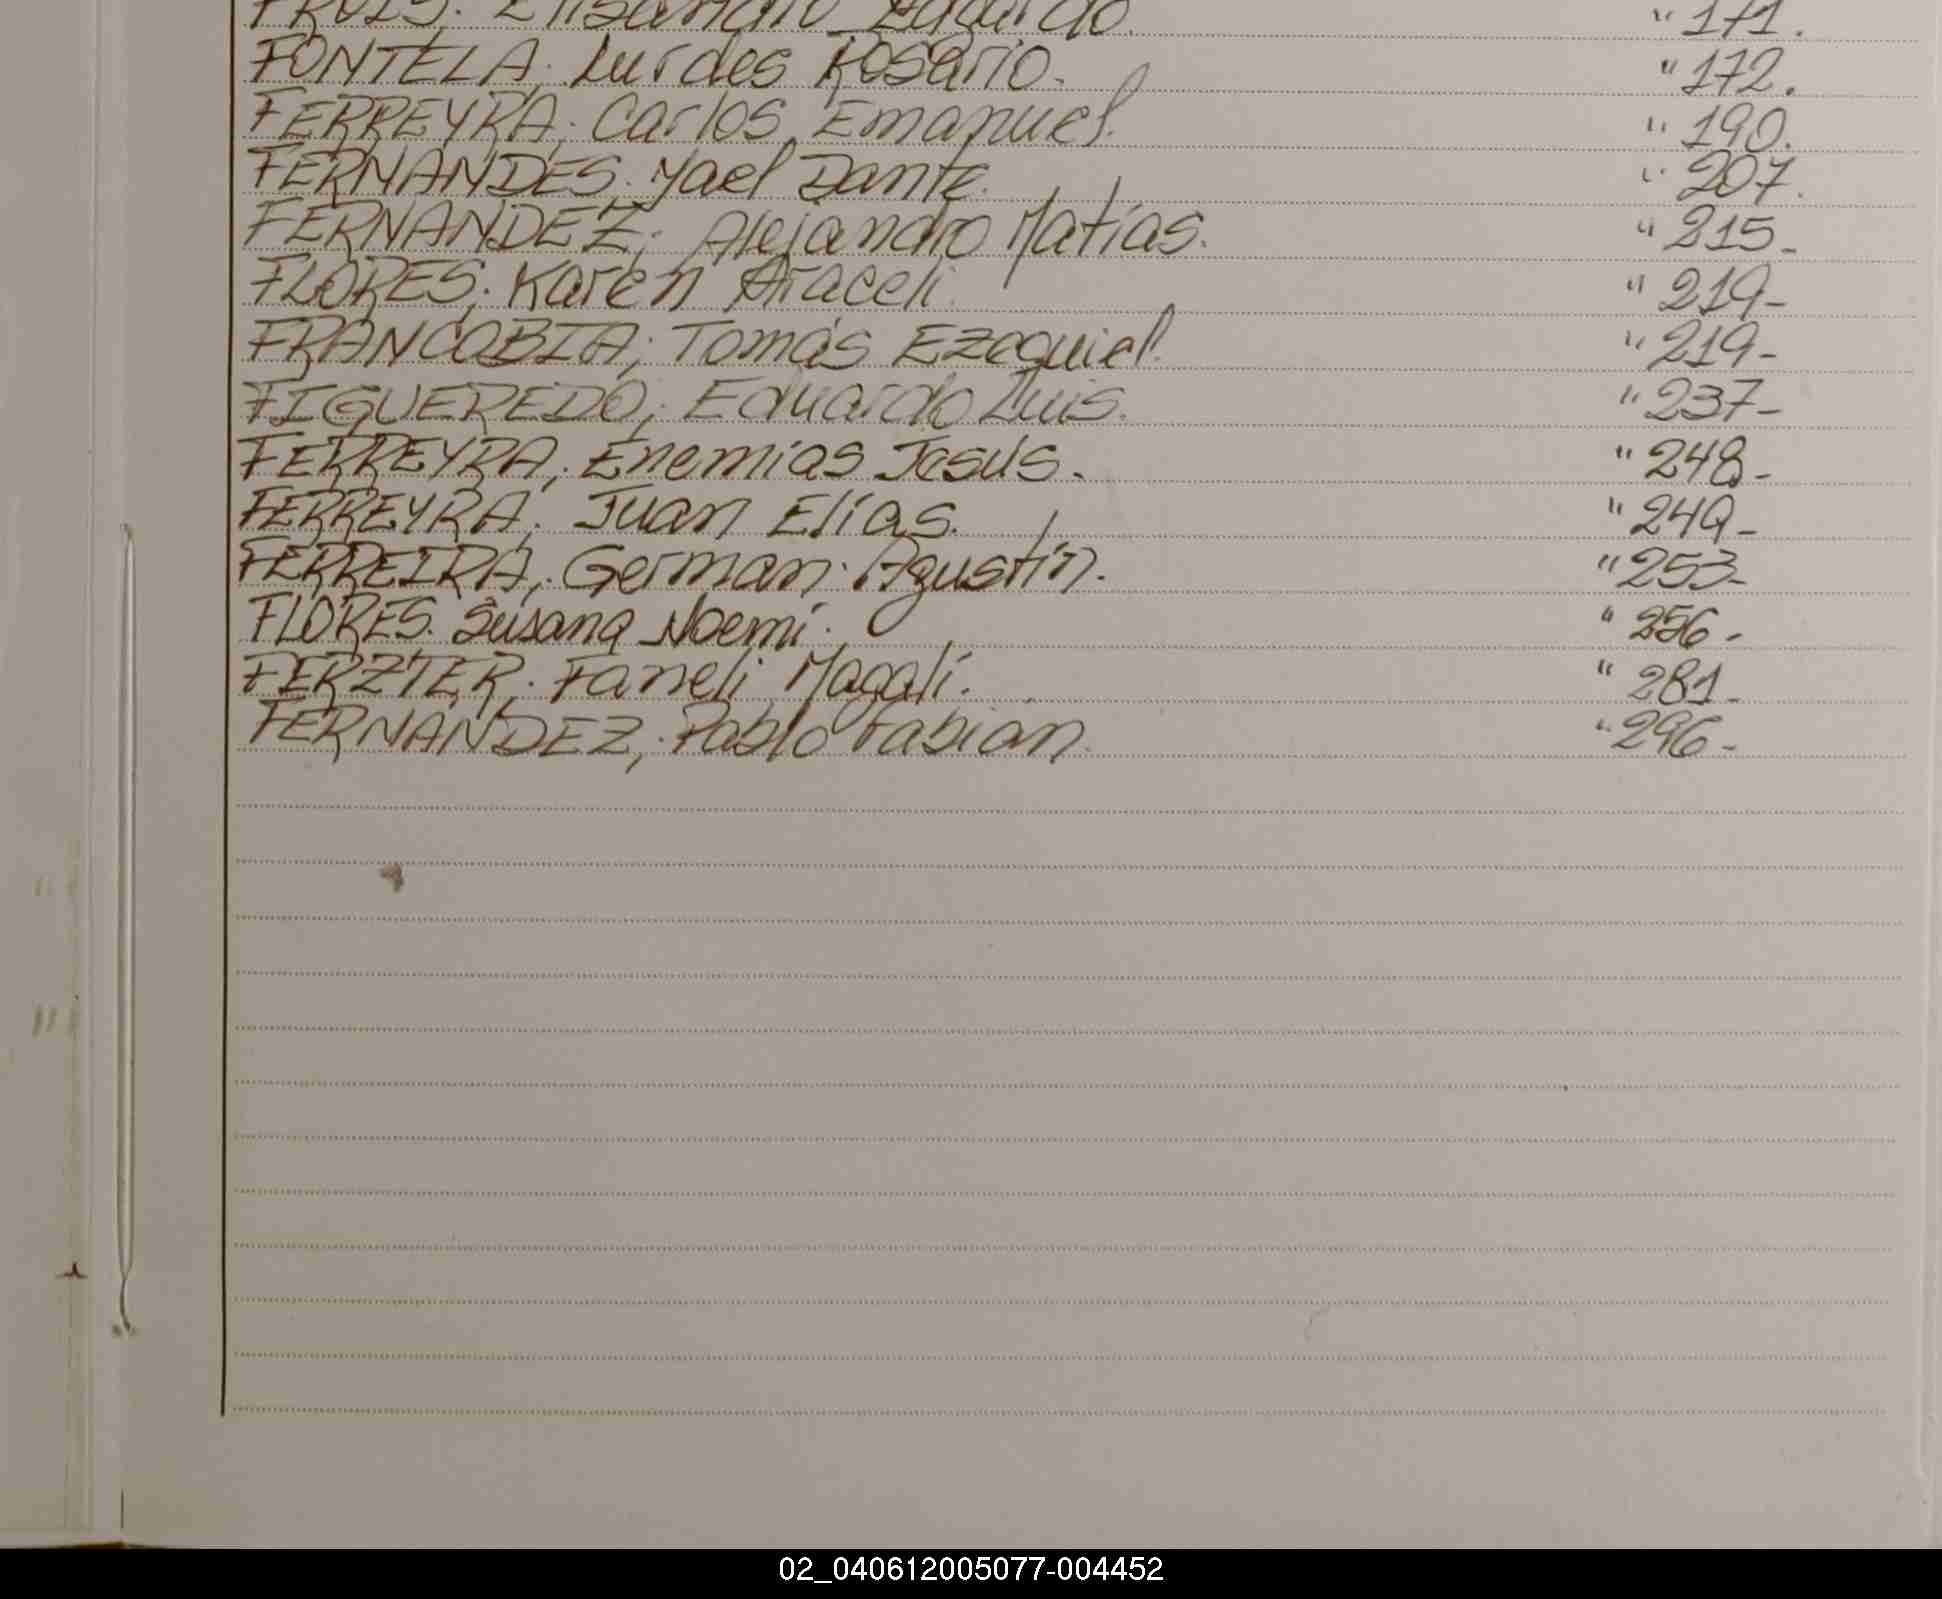 " 171.
FONTELA. Lurdes Rosario. " 172.
FERREYRA. Carlos Emanuel. " 190.
FERNANDES. Yael Dante. " 207.
FERNANDEZ, Alejandro Matías. " 215-
FLORES. Karen Araceli. " 219-
FRANCOBIA, Tomás Ezequiel. " 219-
FIGUEREDO, Eduardo Luis. " 237-
FERREYRA, Enemias Jesús. " 248-
FERREYRA. Juan Elías. " 249-
FERREIRA, German Agustín. " 253-
FLORES. Susana Noemi. " 256-
FERZTER. Faneli Magalí. " 281-
FERNANDEZ, Pablo Fabian. " 296-
02_040612005077-004452